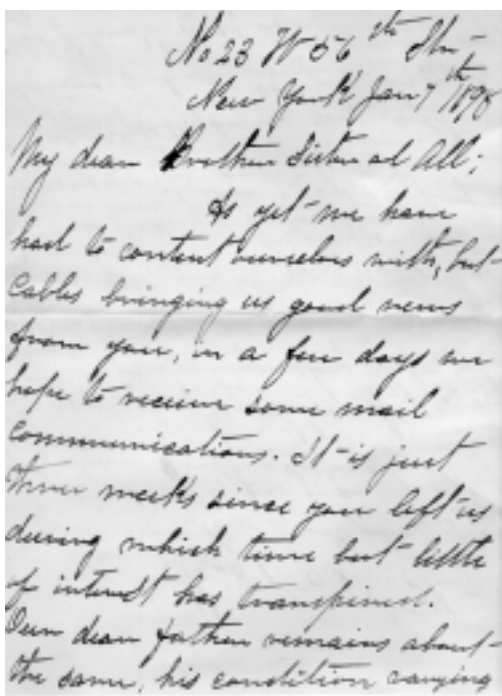 No 23 W 56th Str-
New York Jan 7th 1898
My dear Brother Sister ad All;
As yet we have
had to content ourselves with, but
Cables bringing us good news
from you, in a few days we
hope to receive some mail
Communications. It is just
three weeks since you left us
during which time but little
of interest has transpired.
Our dear father remains about
the same, his condition varying